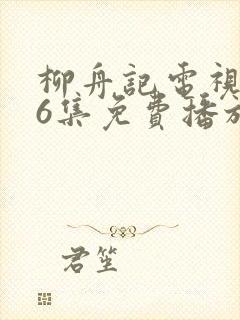 柳舟記電視
6集免費播放
君笙